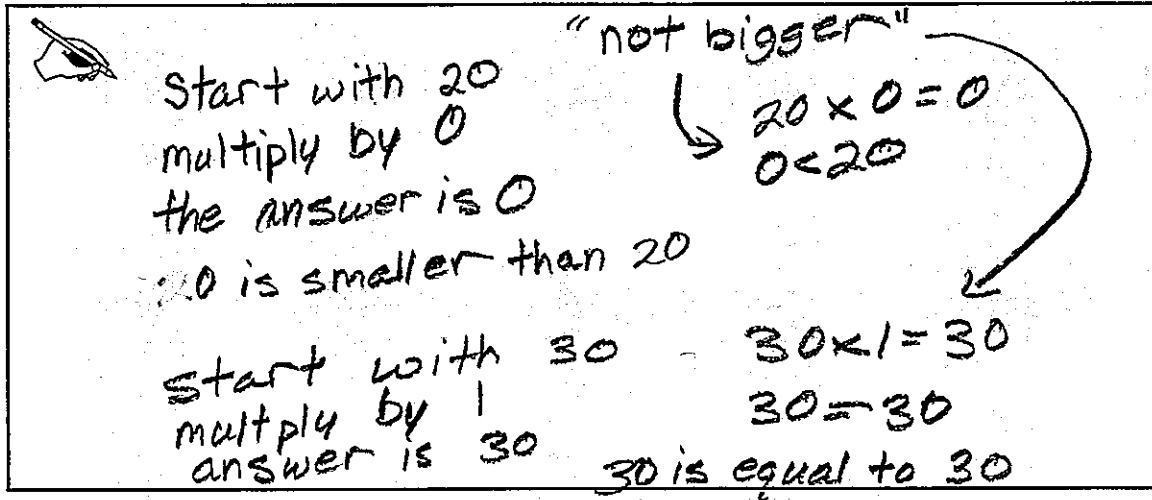 "not bigger"
Start with 20
multiply by 0
the answer is 0
0 is smaller than 20
20 x 0 = 0
0<20
start with 30
multply by 1
answer is 30
30x1=30
30=30
30 is equal to 30